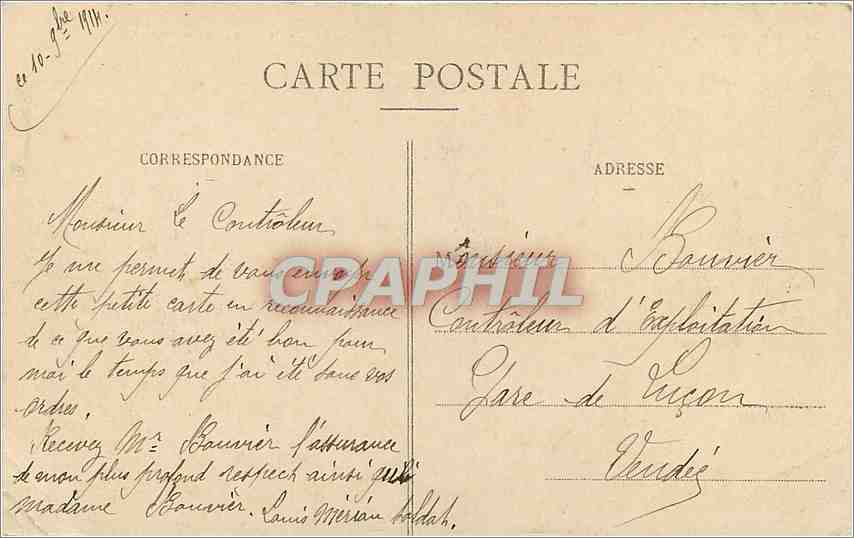 ce 10 - 9bre 1914.
CARTE POSTALE
CORRESPONDANCE
ADRESSE
Monsieur Le Contrôleur
Je me permet de vous envoyer
cette petite carte en reconnaissance
de ce que vous avez été bon pour
moi le temps que j'ai été sous vos
ordres.
Recevez Mr Bouvier l'assurance
de mon plus profond respect ainsi que
madame Bouvier. Louis soldat.
Monsieur Bouvier
Contrôleur d'Exploitation
Gare de Luçon
Vendée
CPAPHIL